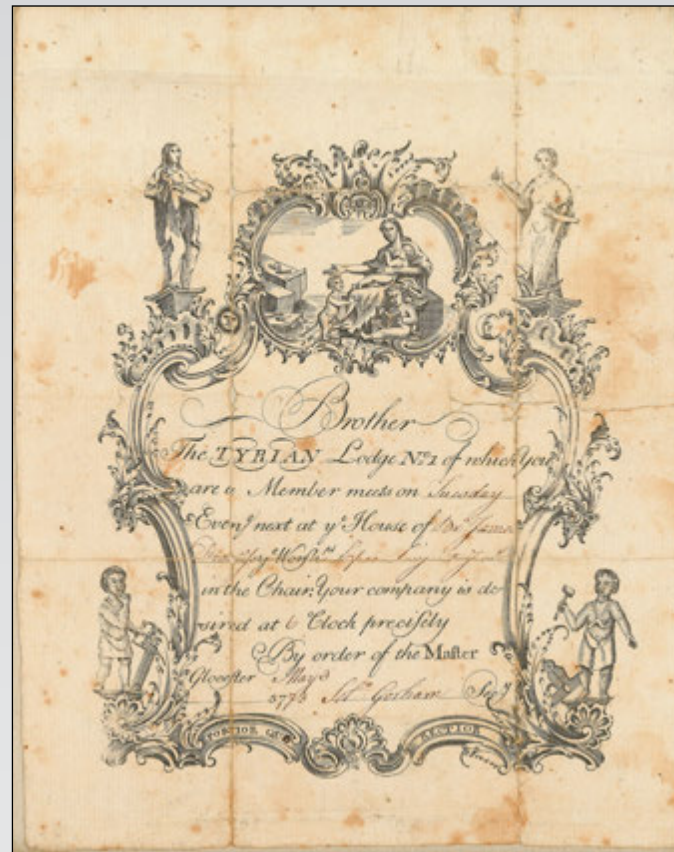 Brother
The TYRIAN Lodge No. 1 of which You
are a Member meets on Tuesday
Eveng next at ye House of Br. James
ye Worshl
in the Chair, Your company is de
sired at 6 Clock precisely
By order of the Master
Glocester May
Sol. Gorham Secy
FORTIOR QUO
RECTIOR